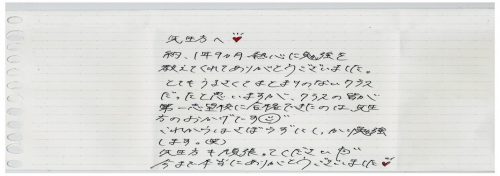 先生方へ
約、1年9ヵ月熱心に勉強を
教えてくれてありがとうございました。
とてもうるさくてまとまりのないクラス
だったと思いますがで、クラスの皆が
第一志望校に合格できたのは、先生
方のおかげです
これからはさぼらずにしっかり勉強
します。(笑)
先生方も頑張ってください
今まで本当にありがとうございました